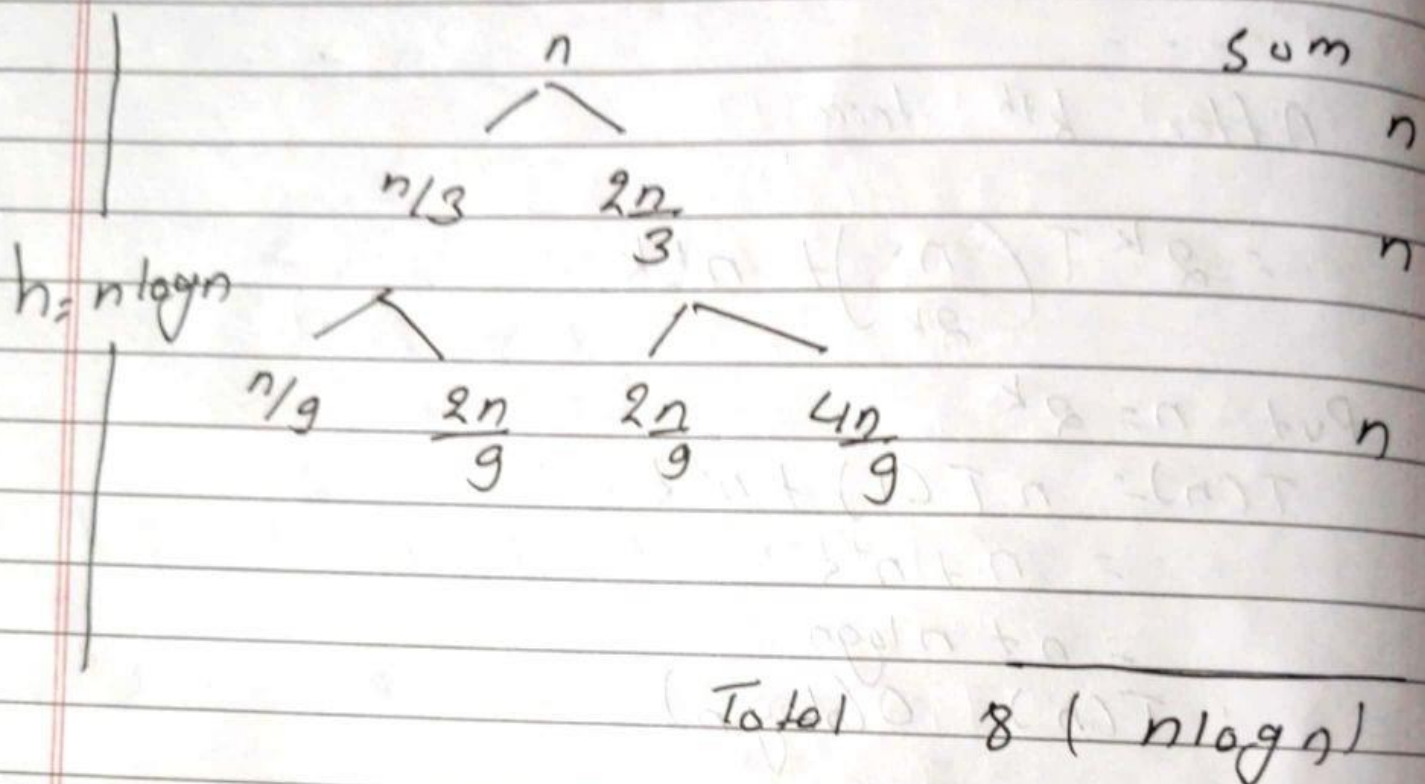 n Sum
n
n/3 2n/3
n
h= nlogn
n/9 2n/9 2n/9 4n/9 n
Total 8 ( nlogn)